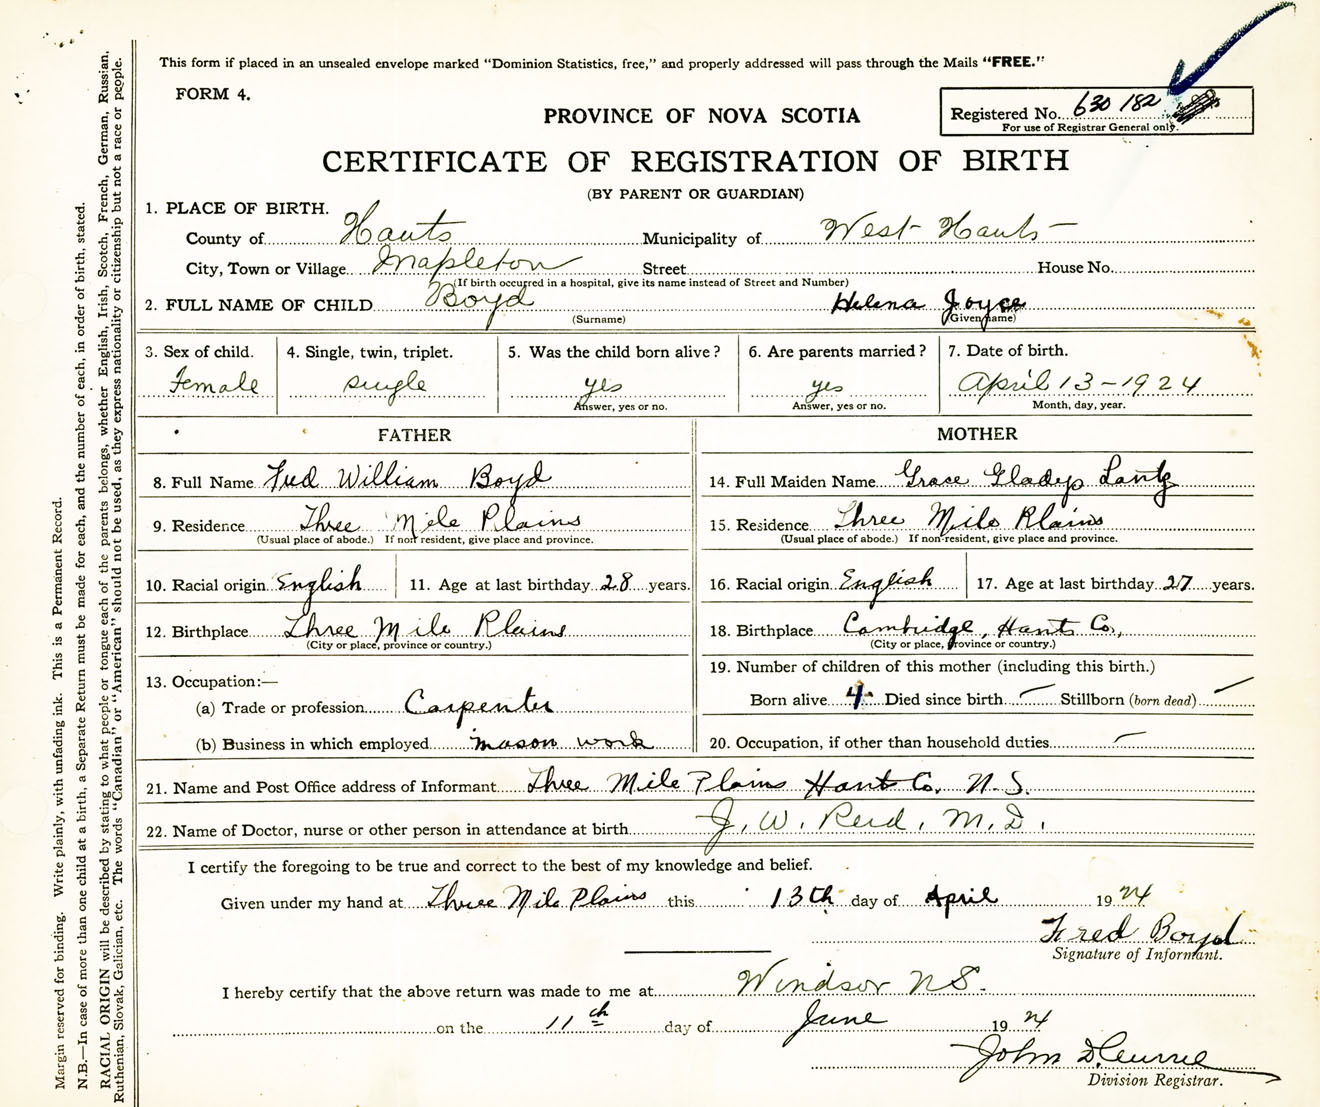 This form if placed in an unsealed envelope marked "Dominion Statistics, free," and properly addressed will pass through the Mails "FREE."
FORM 4.
PROVINCE OF NOVA SCOTIA
Registered No. 630 182
For use of Registrar General only.
CERTIFICATE OF REGISTRATION OF BIRTH
(BY PARENT OR GUARDIAN)
1. PLACE OF BIRTH.
County of Hants Municipality of West Hants
City, Town or Village Mapleton Street House No.
(If birth occurred in a hospital, give its name instead of Street and Number)
2. FULL NAME OF CHILD Boyd Helena Joyce
(Surname) (Given name)
3. Sex of child. 4. Single, twin, triplet. 5. Was the child born alive? 6. Are parents married? 7. Date of birth.
Female single yes yes April 13-1924
Answer, yes or no. Answer, yes or no. Month, day, year.
FATHER MOTHER
8. Full Name Fred William Boyd 14. Full Maiden Name Grace Gladys Lantz
9. Residence Three Mile Plains 15. Residence Three Mile Plains
(Usual place of abode.) If non resident, give place and province. (Usual place of abode.) If non-resident, give place and province.
10. Racial origin English 11. Age at last birthday 28 years. 16. Racial origin English 17. Age at last birthday 27 years.
12. Birthplace Three Mile Plains 18. Birthplace Cambridge, Hants Co,
(City or place, province or country.) (City or place, province or country.)
13. Occupation:— 19. Number of children of this mother (including this birth.)
(a) Trade or profession Carpenter Born alive 4 Died since birth — Stillborn (born dead) —
(b) Business in which employed mason work 20. Occupation, if other than household duties —
21. Name and Post Office address of Informant Three Mile Plains Hant Co. N.S.
22. Name of Doctor, nurse or other person in attendance at birth J. W. Reid, M.D.
I certify the foregoing to be true and correct to the best of my knowledge and belief.
Given under my hand at Three Mile Plains this 13th day of April 1924
Fred Boyd
Signature of Informant.
I hereby certify that the above return was made to me at Windsor NS.
on the 11th day of June 1924
John D. Currie
Division Registrar.
Margin reserved for binding. Write plainly, with unfading ink. This is a Permanent Record.
N.B.—In case of more than one child at a birth, a Separate Return must be made for each, and the number of each, in order of birth, stated.
RACIAL ORIGIN will be described by stating to what people or tongue each of the parents belongs, whether English, Irish, Scotch, French, German, Russian,
Ruthenian, Slovak, Galician, etc. The words "Canadian" or "American" should not be used, as they express nationality or citizenship but not a race or people.